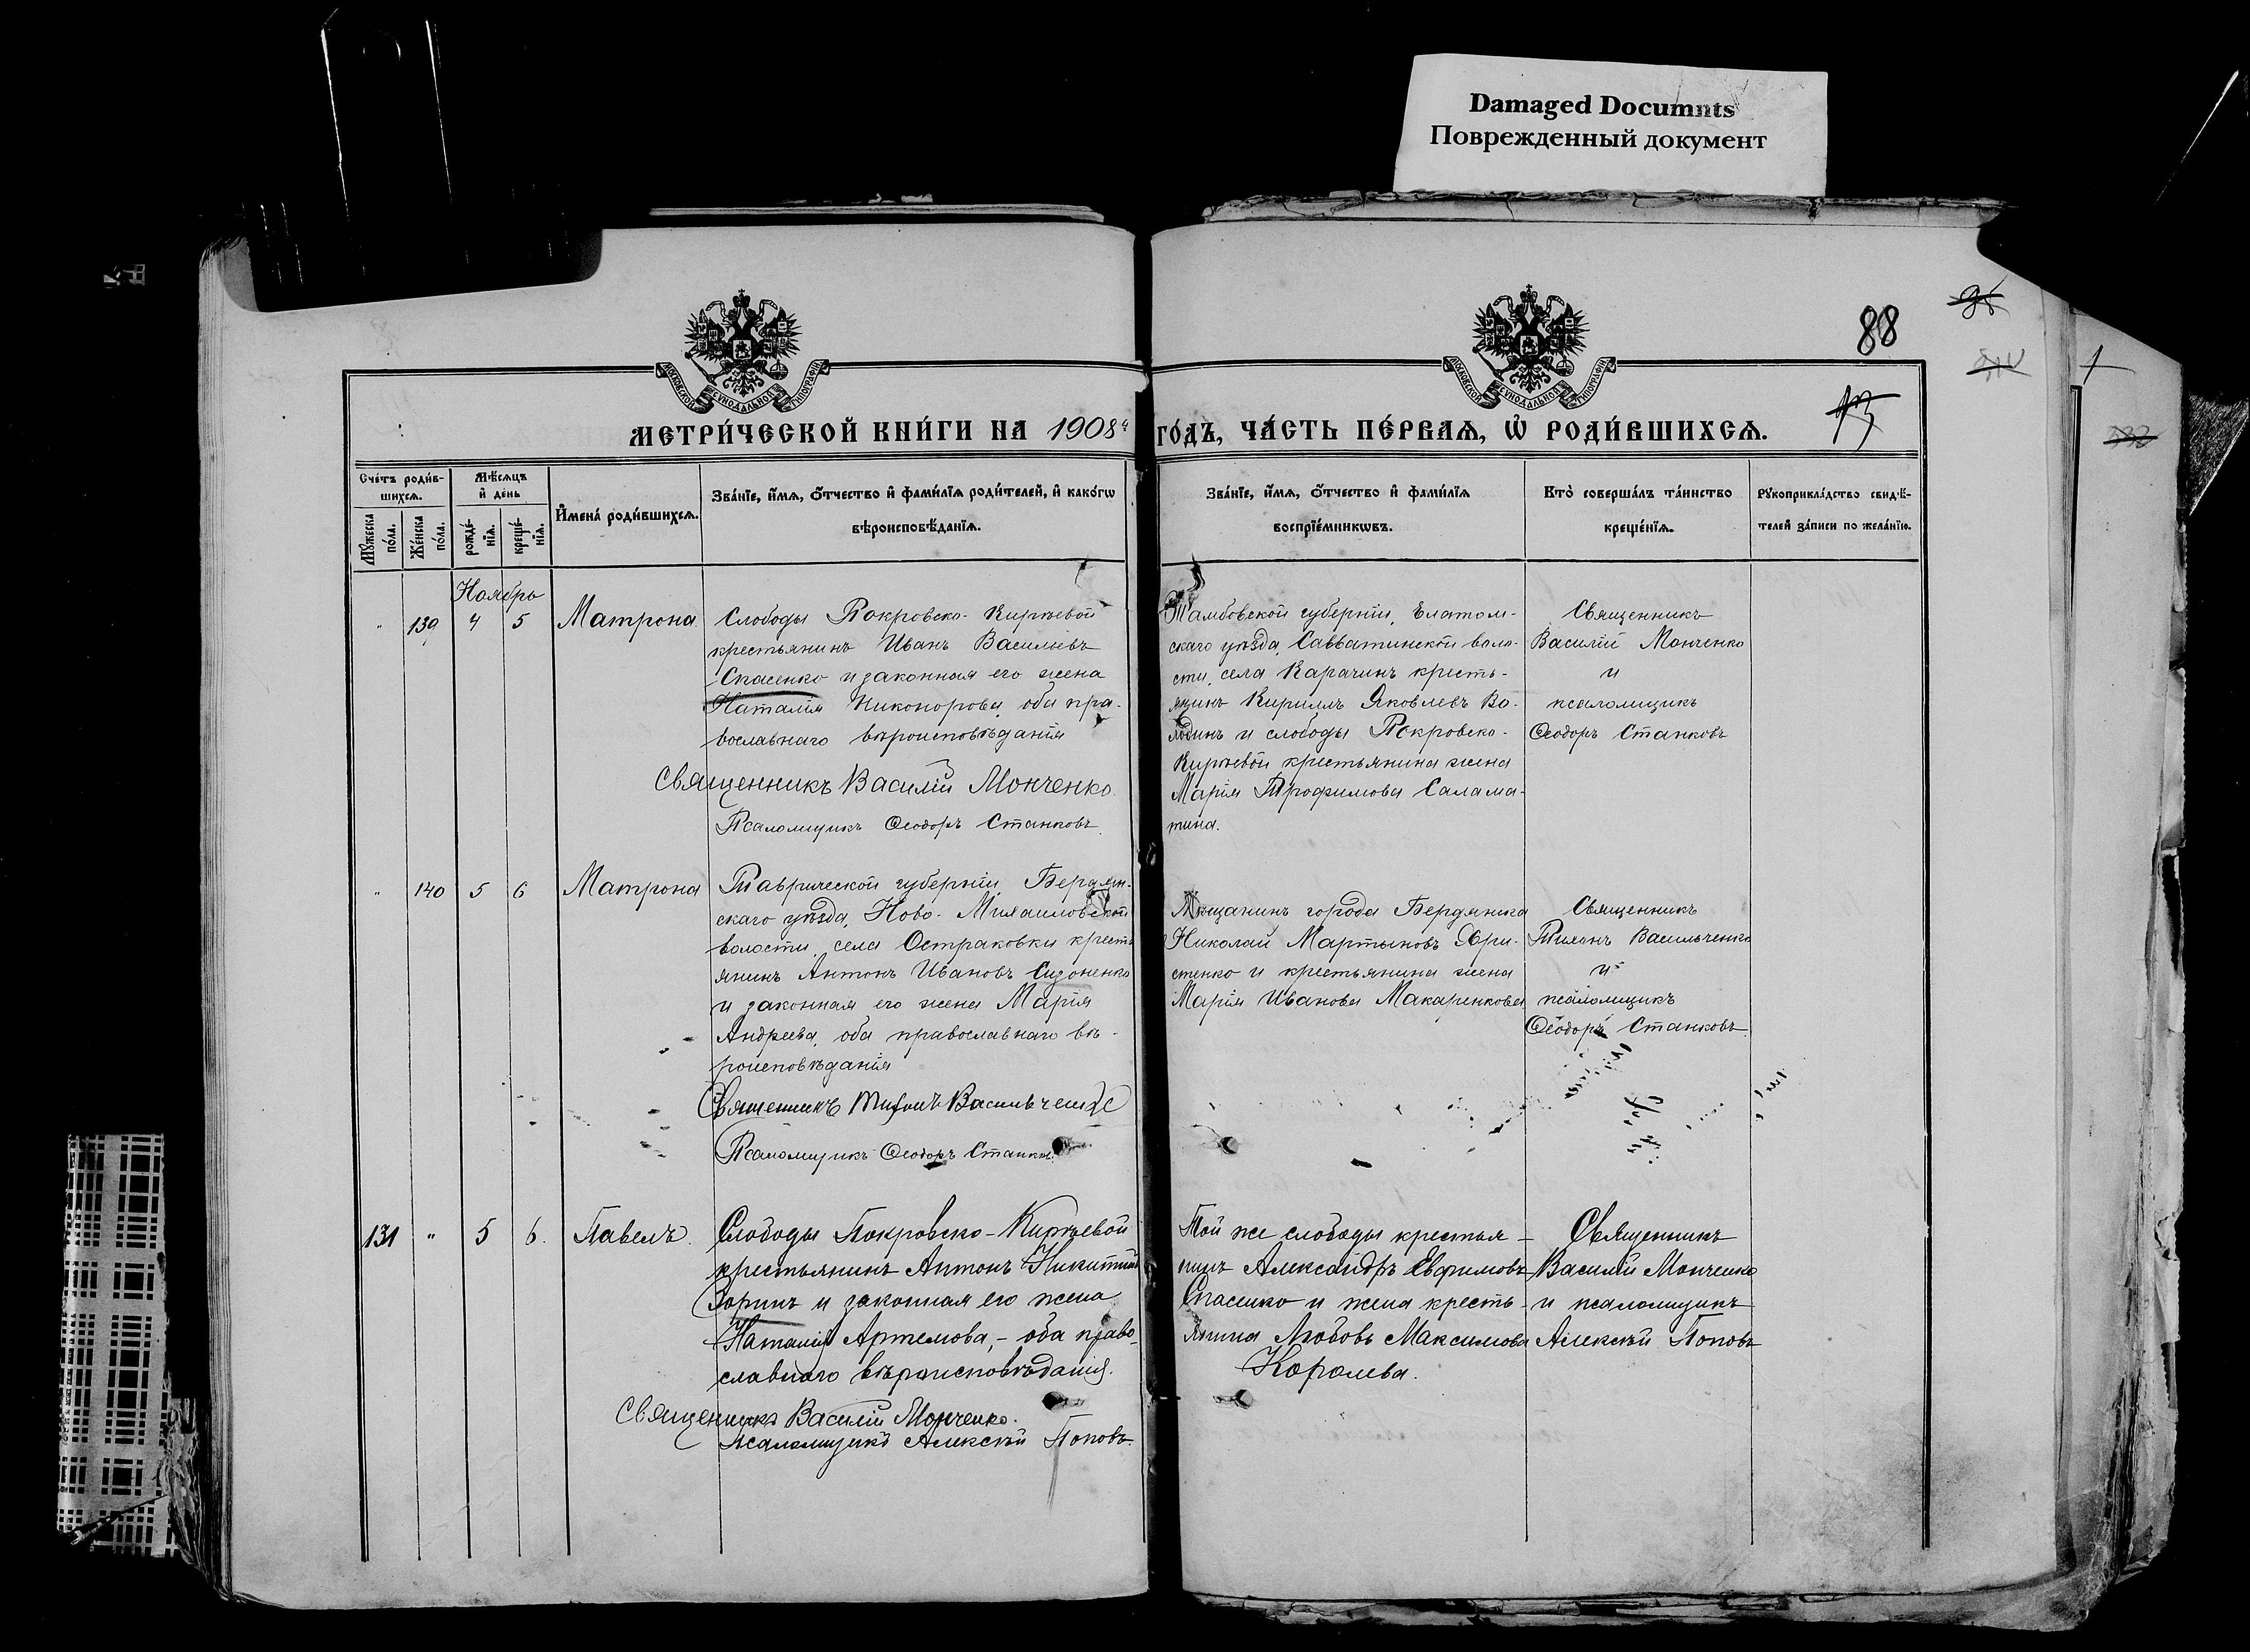 Damaged Documnts
Поврежденный документ
88
МОСКОВСКОЙ СѴНОДАЛЬНОЙ ТИПОГРАФІИ
МОСКОВСКОЙ СѴНОДАЛЬНОЙ ТИПОГРАФІИ
МЕТРИ́ЧЕСКОЙ КНИ́ГИ НА 1908й ГО́ДЪ, ЧА́СТЬ ПЕ́РВАѦ, Ѡ҆ РОДИ́ВШИХСѦ.
Сче́тъ роди́в-
шихсѧ.
Мѣ́сѧцъ
и҆ де́нь
Мꙋ́жеска
по́ла.
Же́нска
по́ла.
рожде́-
нїѧ.
креще́-
нїѧ.
И҆мена̀ роди́вшихсѧ.
Зва́нїе, и҆́мѧ, о҆́тчество и҆ фами́лїѧ роди́телей, и҆ како́гѡ
вѣроисповѣ́данїѧ.
Зва́нїе, и҆́мѧ, о҆́тчество и҆ фами́лїѧ
воспрїе́мникѡвъ.
Кто̀ соверша́лъ та́инство
креще́нїѧ.
Рꙋкоприкла́дство свидѣ́-
телей за́писи по жела́нїю.
Ноябрь
" 139 4 5 Матрона
Слободы Покровско-Киреевой
крестьянинъ Иванъ Васильевъ
Спасенко и законная его жена
Наталія Никонорова, оба пра-
вославнаго вѣроисповѣданія
Священникъ Василій Монченко.
Псаломщикъ Ѳеодоръ Станковъ.
Тамбовской губерніи, Елатом-
скаго уѣзда, Савватинской воло-
сти, села Карачинъ кресть-
янинъ Кириллъ Яковлевъ Во-
лодинъ и слободы Покровско-
Киреевой крестьянина жена
Марія Трофимова Салама-
тина.
Священникъ
Василій Монченко
и
псаломщикъ
Ѳеодоръ Станковъ
" 140 5 6 Матрона
Таврической губерніи, Бердян-
скаго уѣзда, Ново-Михаиловской
волости, села Остраковки кресть
янинъ Антонъ Ивановъ Сидоненко
и законная его жена Марія
Андреева, оба православнаго вѣ-
роисповѣданія
Священникъ Тихонъ Васильченко
Псаломщикъ Ѳеодоръ Станков
Мѣщанинъ города Бердянска
Николай Мартыновъ Хри-
стенко и крестьянина жена
Марія Иванова Макаренкова
Священникъ
Тихонъ Васильченко
и
псаломщикъ
Ѳеодоръ Станковъ.
131 " 5 6. Павелъ.
Слободы Покровско-Киреевой
крестьянинъ Антонъ Никитинъ
Зоринъ и законная его жена
Наталія Артемова, - оба право-
славнаго вѣроисповѣданія.
Священникъ Василій Монченко.
Псаломщикъ Алексѣй Поповъ.
Той же слободы крестья-
нинъ Александръ Евфимовъ
Спасенко и жена кресть-
янина Любовь Максимова
Королева.
Священникъ
Василій Монченко
и псаломщикъ
Алексѣй Поповъ